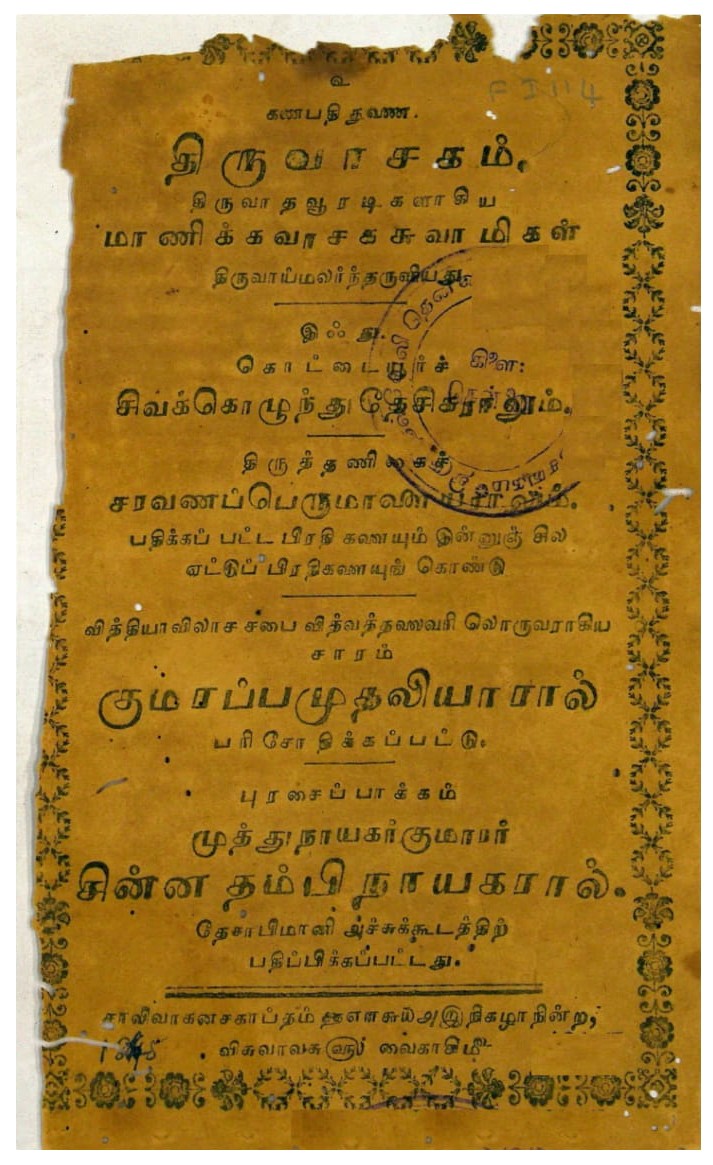 உ
கணபதி துணை.
திருவாசகம்.
திருவாதவூரடிகளாகிய
மாணிக்கவாசகசுவாமிகள்
திருவாய்மலர்ந்தருளியது.
இஃது.
கொட்டையூர்ச்
சிவக்கொழுந்துதேசிகரானும்.
திருத்தணிகைச்
சரவணப்பெருமாளையரானும்.
பதிக்கப் பட்ட பிரதிகளையும் இன்னுஞ் சில
ஏட்டுப் பிரதிகளையுங் கொண்டு
வித்தியாவிலாச சபை வித்வத்தலைவரி லொருவராகிய
சாரம்
குமாரப்பமுதலியாரால்
பரிசோதிக்கப்பட்டு.
புரசைப்பாக்கம்
முத்துநாயகர்குமாரர்
சின்ன தம்பிநாயகரால்.
தேசாபிமானி அச்சுக்கூடத்திற்
பதிப்பிக்கப்பட்டது.
சாலிவாகனசகாப்தம் நிகழாநின்ற,
1845 விசுவாவசு௵ வைகாசி௴
கிளை:
FI 114